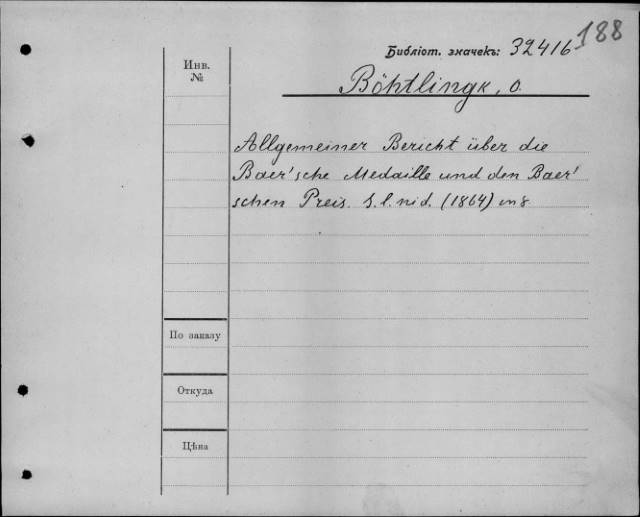 188
Библіот. значекъ: 32416
Инв.
№
Böhtlingk, O.
Allgemeiner Bericht über die
Baer'sche Medaille und den Baer'
schen Preis. S. l. ni d. (1864) in 8
По заказу
Откуда
Цѣна